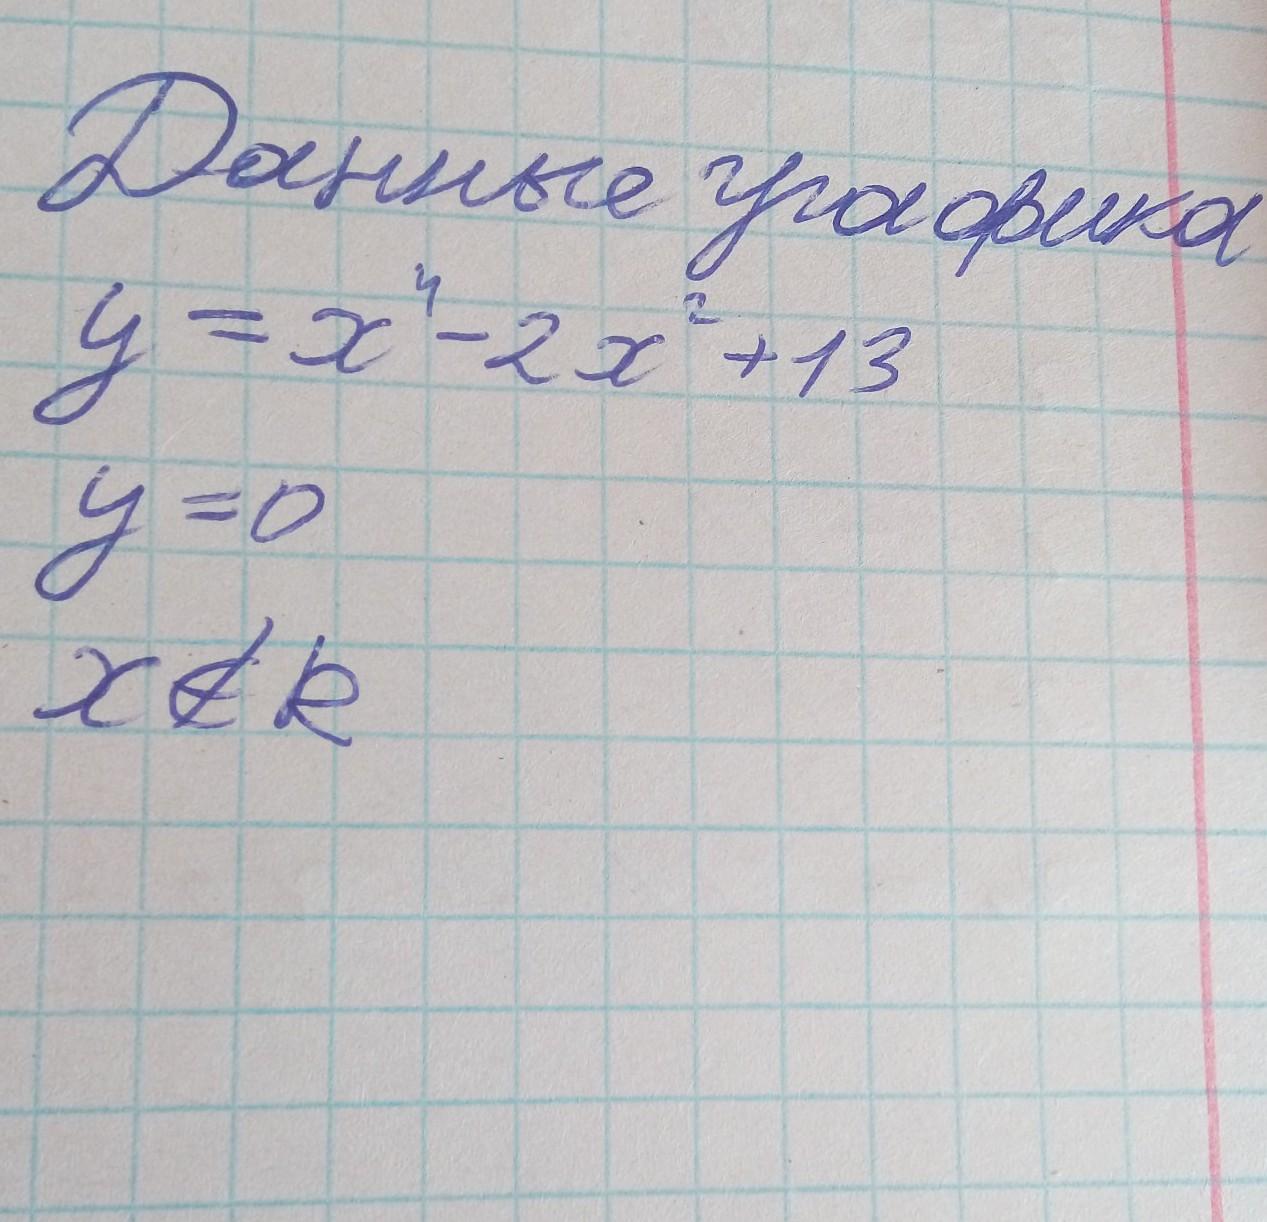 Данные графика
y = x⁴ - 2x² + 13
y = 0
x ∉ R